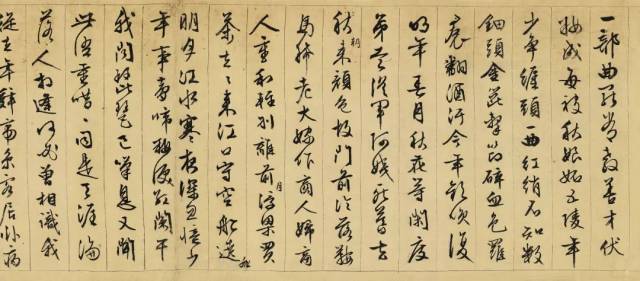 一部曲罷常教善才伏
妝成每被秋娘妬五陵年
少爭纏頭一曲紅綃不知數
鈿頭金篦擊節碎血色羅
裙翻酒汙今年歡笑復
明年春月秋花等閑度
弟走從軍阿姨死暮去
朝來顏色故門前冷落鞍
馬稀老大嫁作商人婦商
人重利輕別離前月浮梁買
茶去去來江口守空船遶船
明月江水寒夜深忽憶少
年事夢啼粧淚紅闌干
我聞琵琶已嘆息又聞
此語重唧唧同是天涯淪
落人相逢何必曾相識我
從去年辭帝京客居卧病